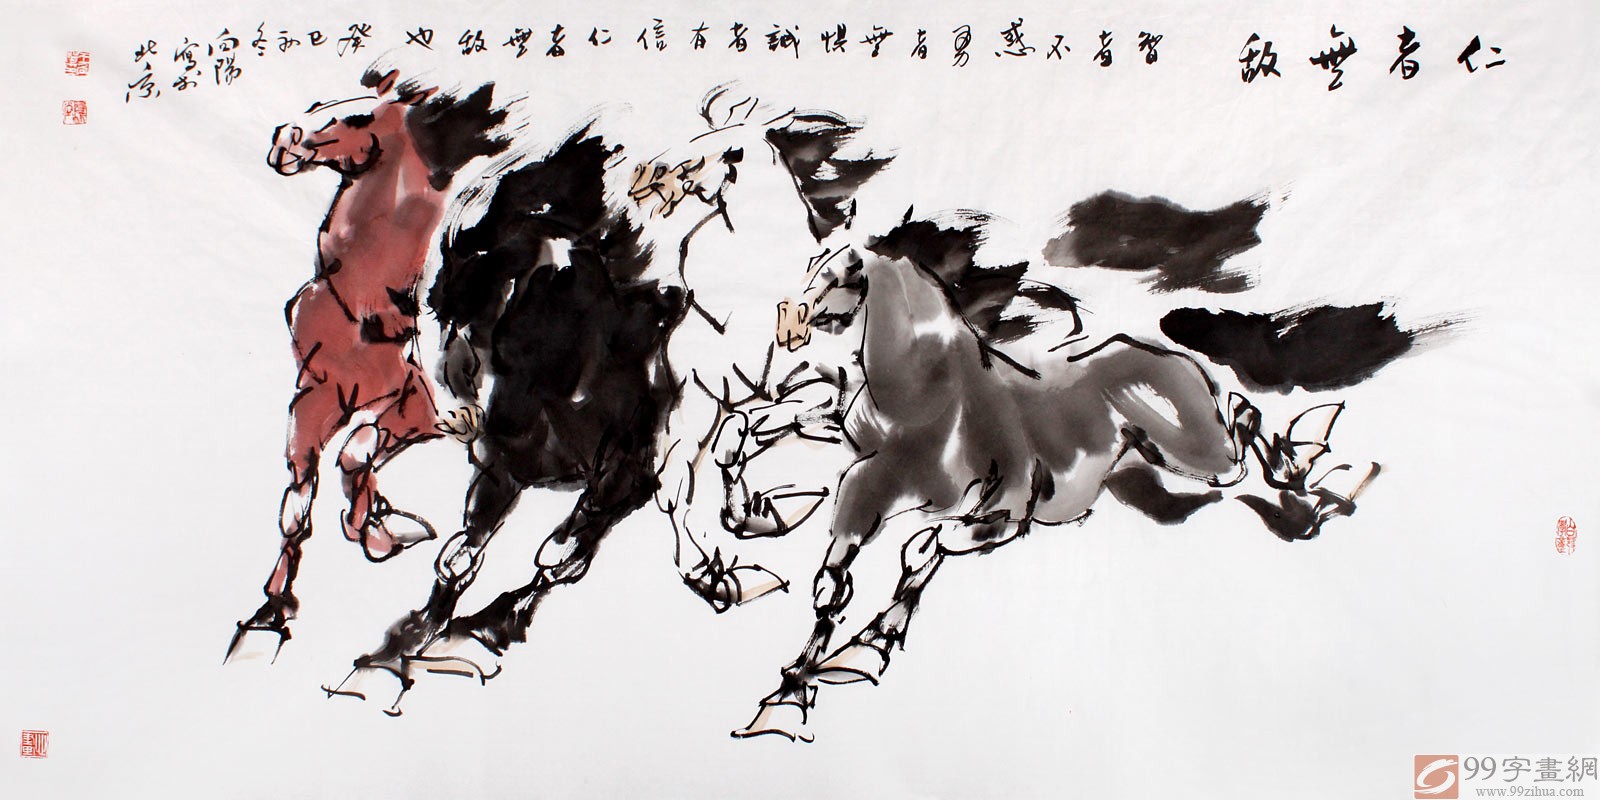 仁者無敵
智者不惑勇者無懼誠者有信仁者無敵也 癸巳初冬
向陽
寫於
北京
99字畫網
www.99zihua.com